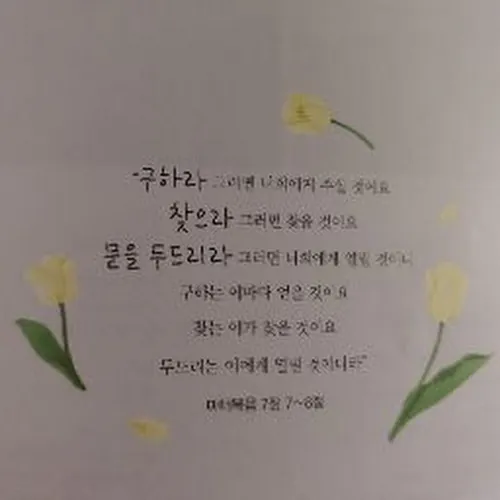 "구하라 그러면 너희에게 주실 것이요
찾으라 그러면 찾을 것이요
문을 두드리라 그러면 너희에게 열릴 것이니
구하는 이마다 얻을 것이요
찾는 이가 찾을 것이요
두드리는 이에게 열릴 것이니라"
마태복음 7절 7~8절